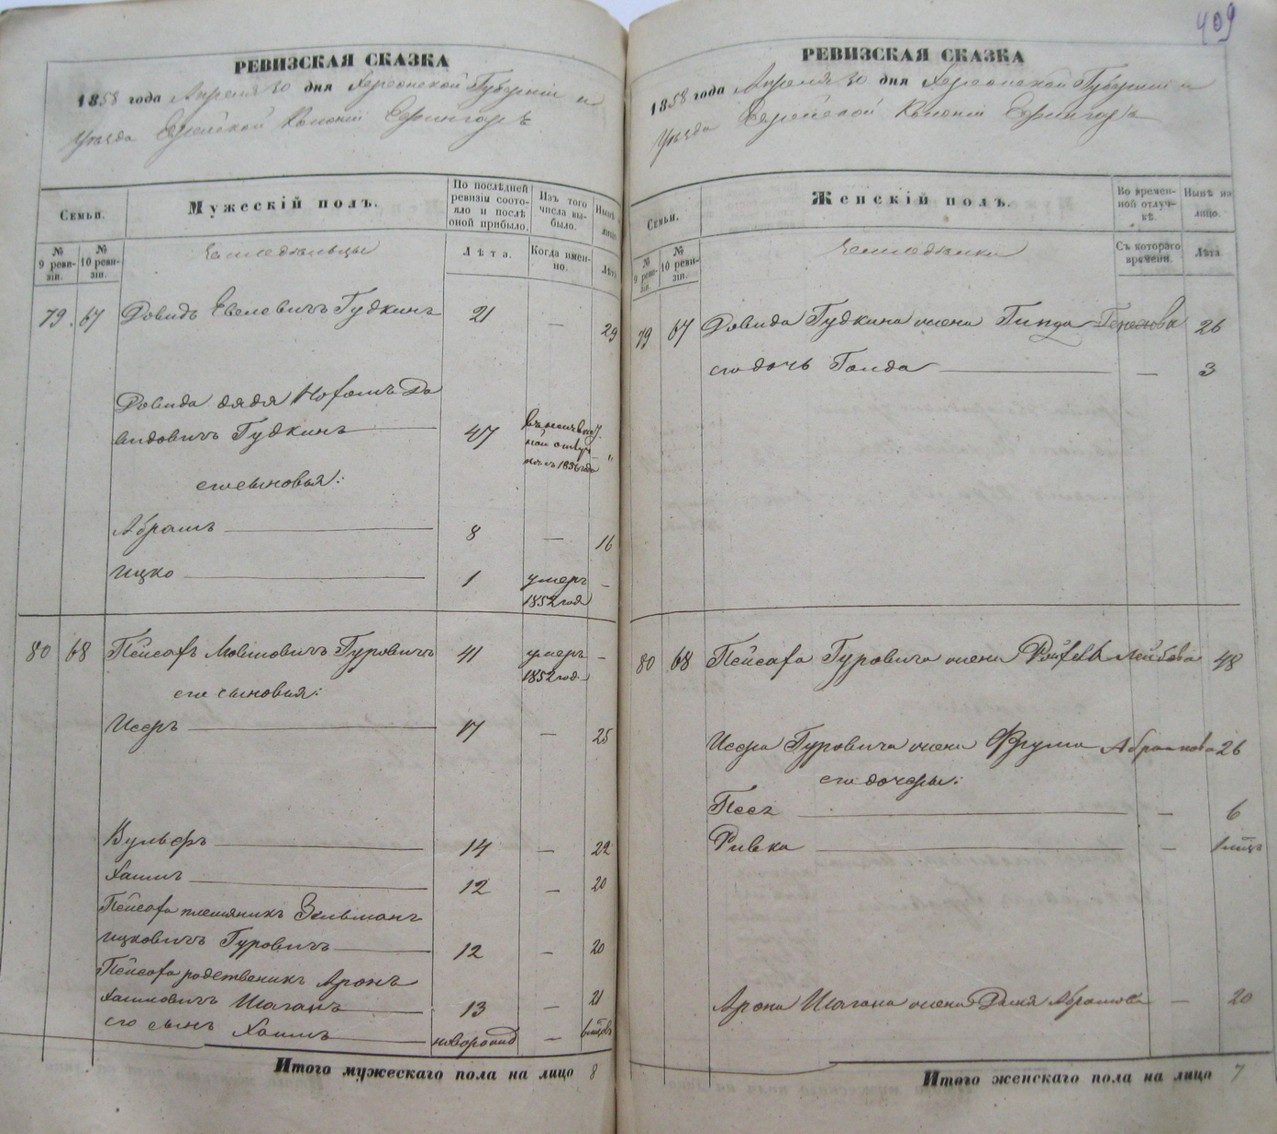 РЕВИЗСКАЯ СКАЗКА
1858 года Апреля 30 дня Херсонской Губернии и
Уезда Еврейской Колонии Ефингорь
Семьи.
Мужескій полъ.
По послѣдней ревизіи состояло и послѣ оной прибыло.
Изъ того числа выбыло.
Нынѣ
№ 9 ревизіи.
№ 10 ревизіи.
Земледельцы
Лѣта.
Когда именно.
Лѣта
79. 67 Довидъ Евелевичъ Гудкинъ 21 — 29
Довида дядя Нохомъ Да
видовичъ Гудкинъ 47
1856 года
его сыновья:
Абрамъ 8 — 16
Ицко 1 умеръ —
1852 год
80 68 Пейсахъ Мовшовичъ Гуровичъ 41 умеръ —
1852 год
его сыновья:
Исеръ 17 — 25
Вульфъ 14 — 22
Хаимъ 12 — 20
Пейсаха племяникъ Зельманъ
Ицковичъ Гуровичъ 12 — 20
Пейсаха родственикъ Аронъ
Хаимовичъ Шаганъ 13 — 21
его сынъ Хаимъ новорожд — 6 мцовъ
Итого мужескаго пола на лицо 8
409
РЕВИЗСКАЯ СКАЗКА
1858 года Апреля 30 дня Херсонской Губернии и
Уезда Еврейской Колонии Ефингорь
Семьи.
Женскій полъ.
Во временной отлучкѣ.
Нынѣ на лицо.
№ 9 ревизіи.
№ 10 ревизіи.
Земледелки
Съ котораго времени.
Лѣта
79 67 Довида Гудкина жена Гинда 26
его дочь Голда — 3
80 68 Пейсаха Гуровича жена Лейбова 48
Исера Гуровича жена Фрума Абрамова 26
его дочери:
Песя — 6
Ривка — 1 мцъ
Арона Шагана жена Абрамова — 20
Итого женскаго пола на лицо 7